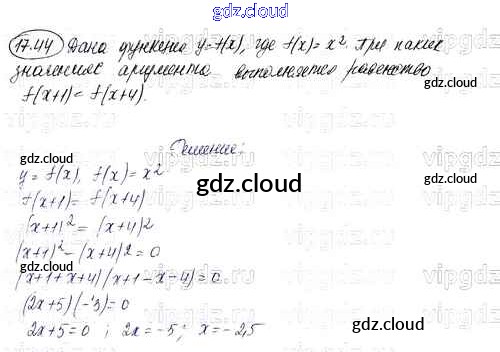 17.44 Дана функция y=f(x), где f(x)=x². При каких
значениях аргумента выполняется равенство
f(x+1)= f(x+4).
Решение:
y=f(x), f(x)=x²
f(x+1)= f(x+4)
(x+1)² = (x+4)2
(x+1)²-(x+4)2=0
(x+1+x+4)(x+1-x-4)=0
(2x+5)(-3)=0
2x+5=0 ; 2x=-5; x=-2,5
gdz.cloud
gdz.cloud
gdz.cloud
gdz.cloud
gdz.cloud
vipgdz